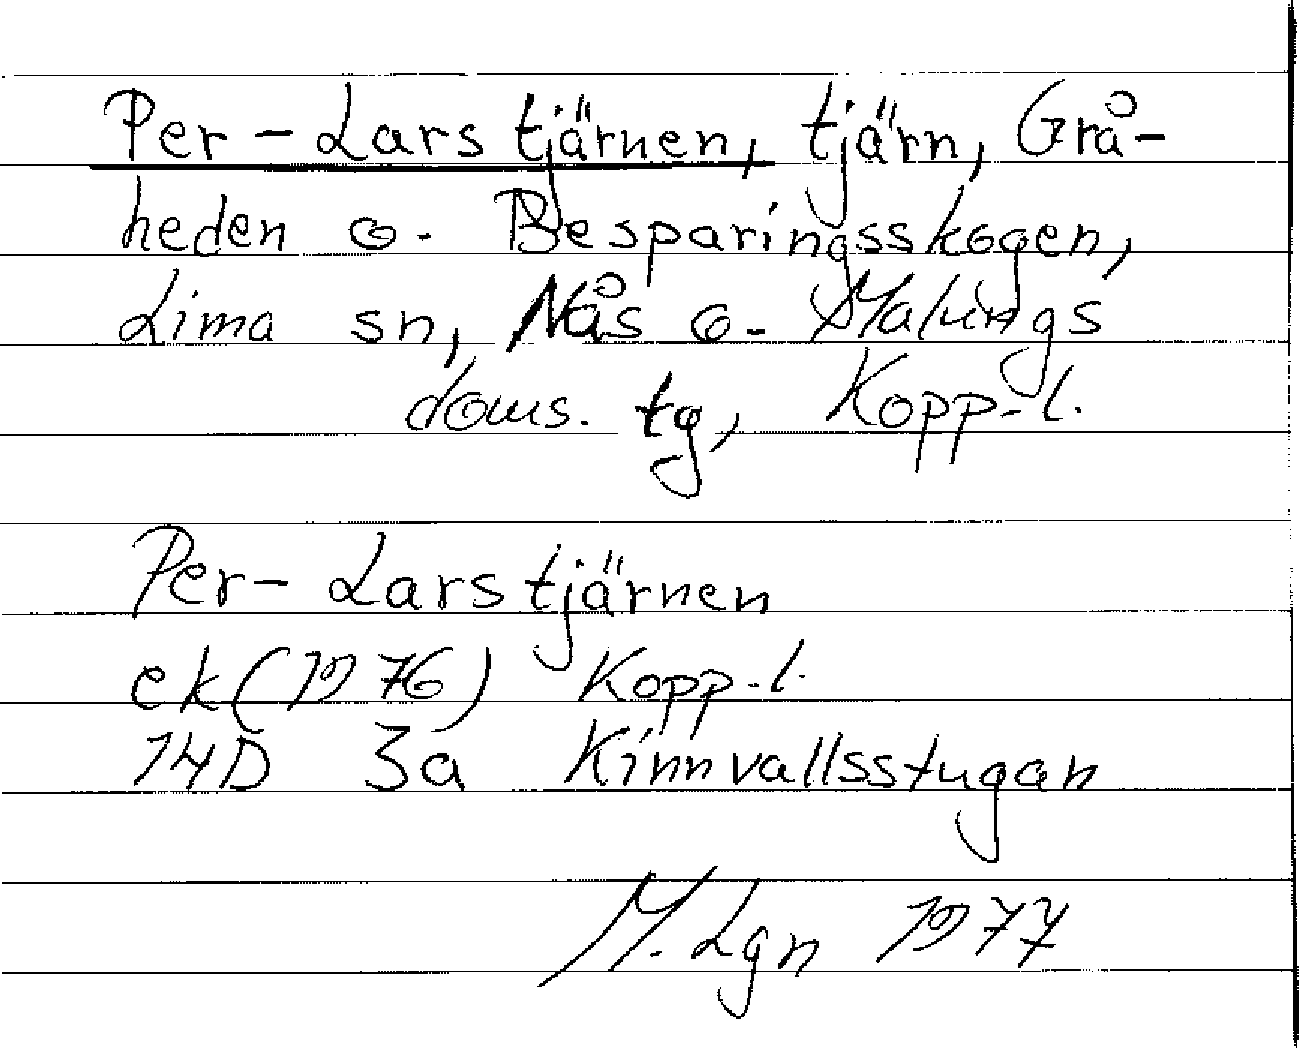 Per-Lars tjärnen, tjärn, Grå-
heden o. Besparingsskogen,
Lima sn, Nås o. Malungs
doms. tg, Kopp.l.
Per-Lars tjärnen
ek(1976) Kopp.l.
14D 3a Kinnvallsstugan
M. Lgn 1977